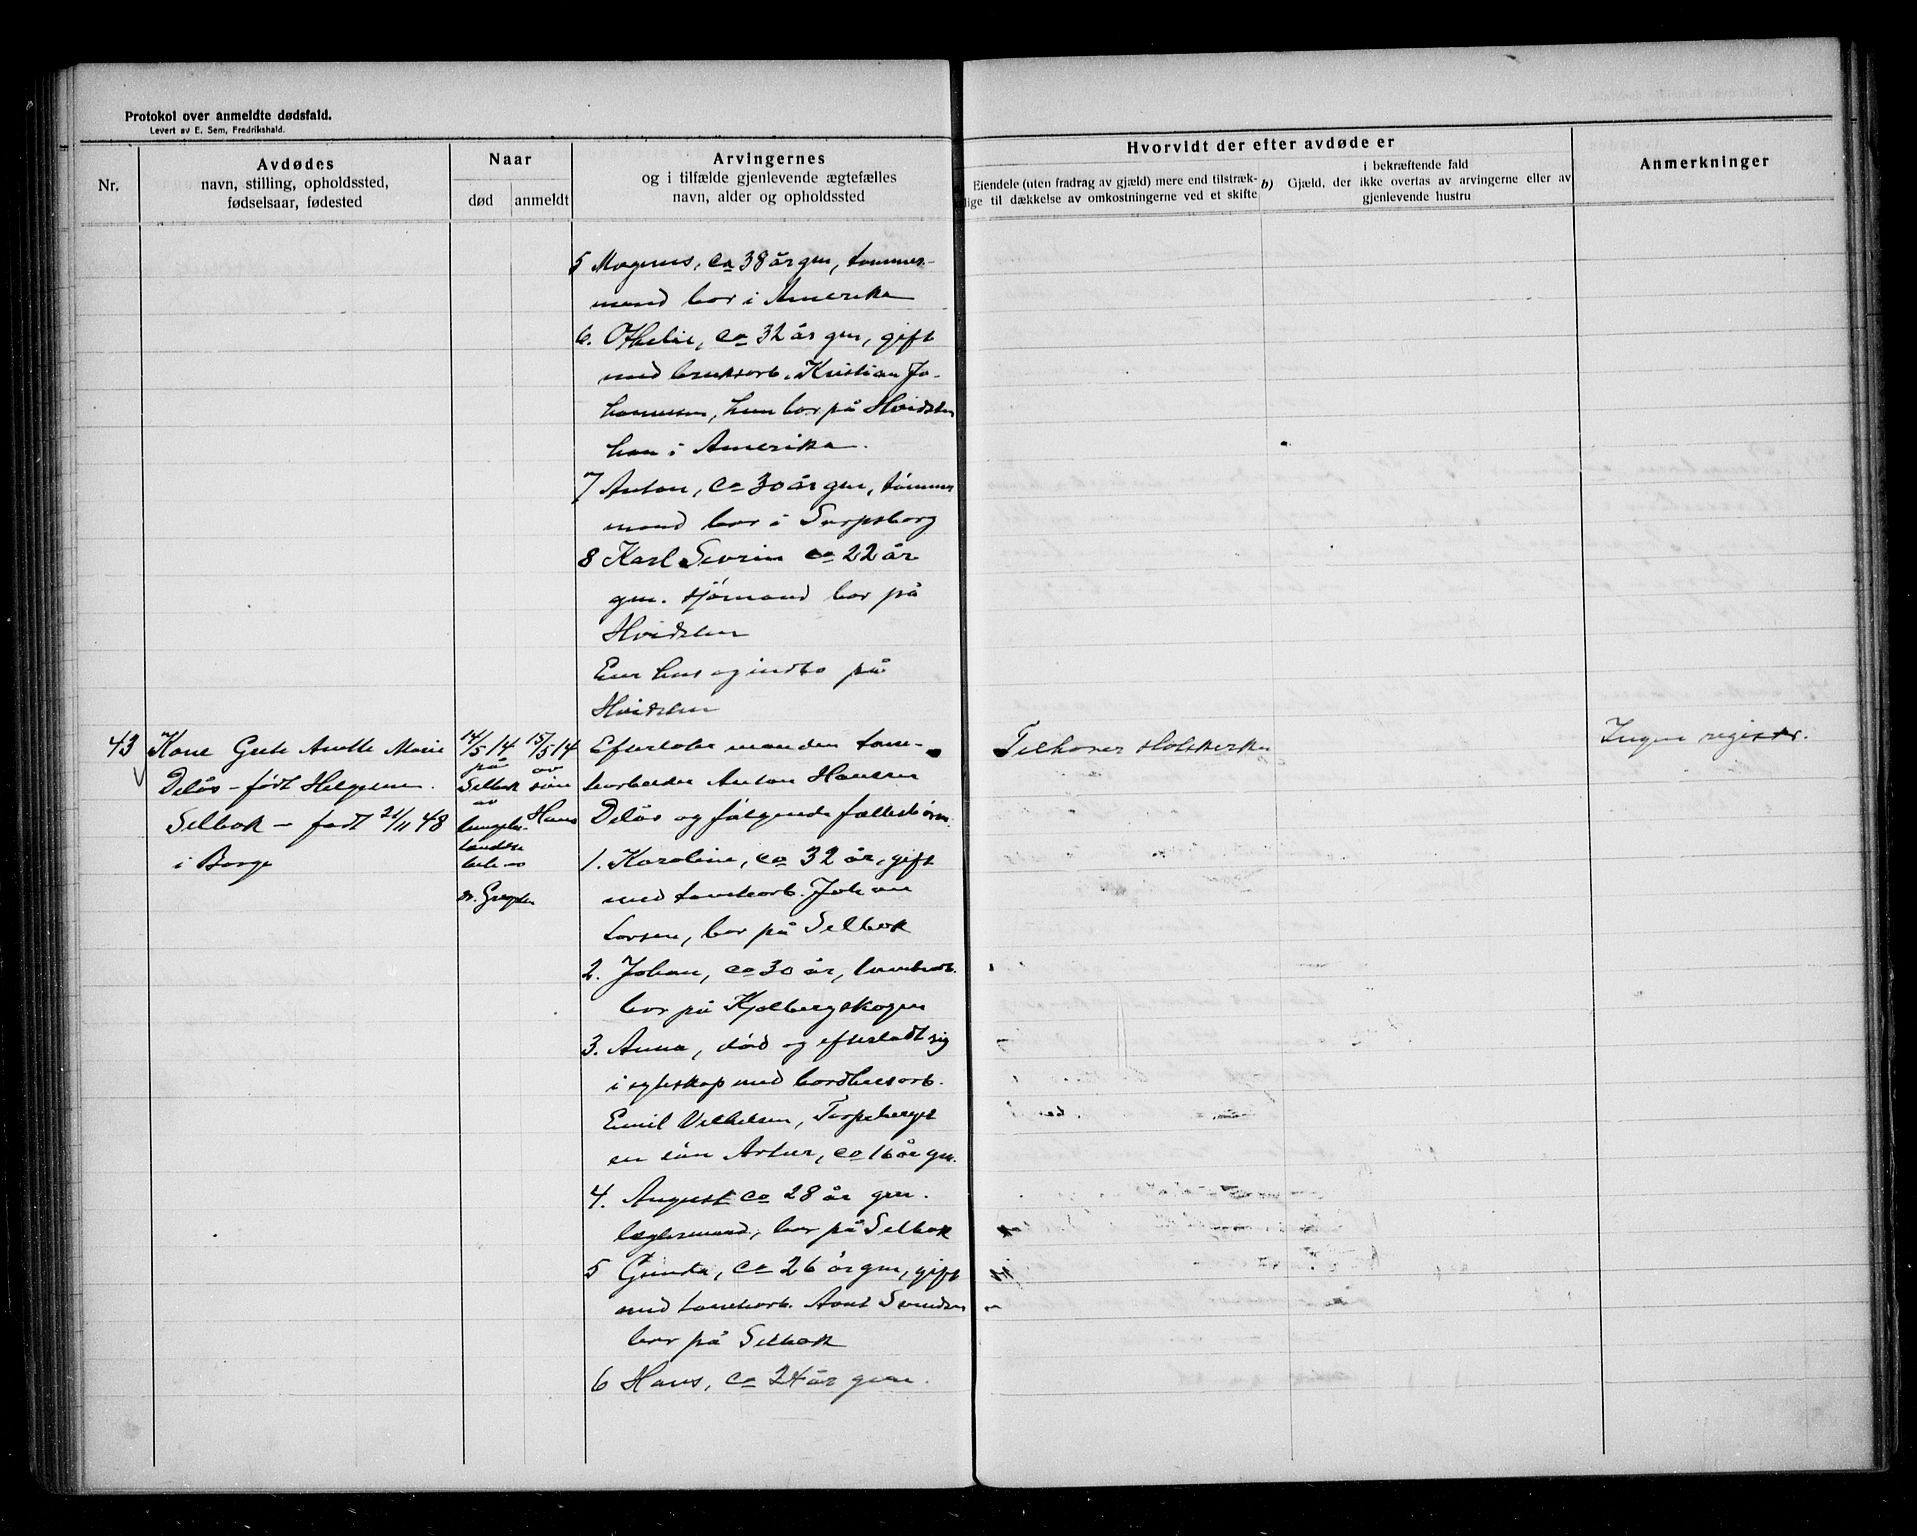 Protokol over anmeldte dødsfald.
Levert av E. Sem, Fredrikshald.
Nr.
Avdødes
navn, stilling, opholdssted,
fødselsaar, fødested
Naar
død
anmeldt
Arvingernes
og i tilfælde gjenlevende ægtefælles
navn, alder og opholdssted
Hvorvidt der efter avdøde er
Eiendele (uten fradrag av gjæld) mere end tilstræk-
lige til dækkelse av omkostningerne ved et skifte
i bekræftende fald
b) Gjæld, der ikke overtas av arvingerne eller av
gjenlevende hustru
Anmerkninger
5 Magnus, ca 38 år gm, tømmer-
mand bor i Amerika
6. Othelie, ca 32 år gm, gift
med bruksarb. Kristian Jo-
hannessen, hun bor på Hvidsten
han i Amerika.
7 Anton, ca 30 år gm, tømmer
mand bor i Sarpsborg
8 Karl Sevrin ca 22 år
gm. sjømand bor på
Hvidsten
Eier hus og indbo på
Hvidsten
43 Kone Grete Anette Marie
Delås - født Helgesen
Selbak - født 21/11 48
i Borge
14/5 14
på
Selbak
av
lungebe-
tændelse
dr.
15/5 14
av
søn
Hans
Efterlater manden tom-
tearbeider Anton Hansen
Delås og følgende fællesbørn
1. Karoline, ca 32 år, gift
med tomtearb. Johan
Larsen, bor på Selbak
2. Johan, ca 30 år, tomtearb.
bor på Kjølbergskogen
3. Anna, død og efterladt sig
i egteskap med bordhusarb.
Emil Vilhelsen, Torpeberget
en søn Artur, ca 16 år gm.
4. August ca 28 år gm.
læglermand, bor på Selbak
5 Gunda, ca 26 år gm, gift
med tomtearb. Aant Svendsen
bor på Selbak
6 Hans, ca 24 år gm.
Tilhører
Ingen registr.